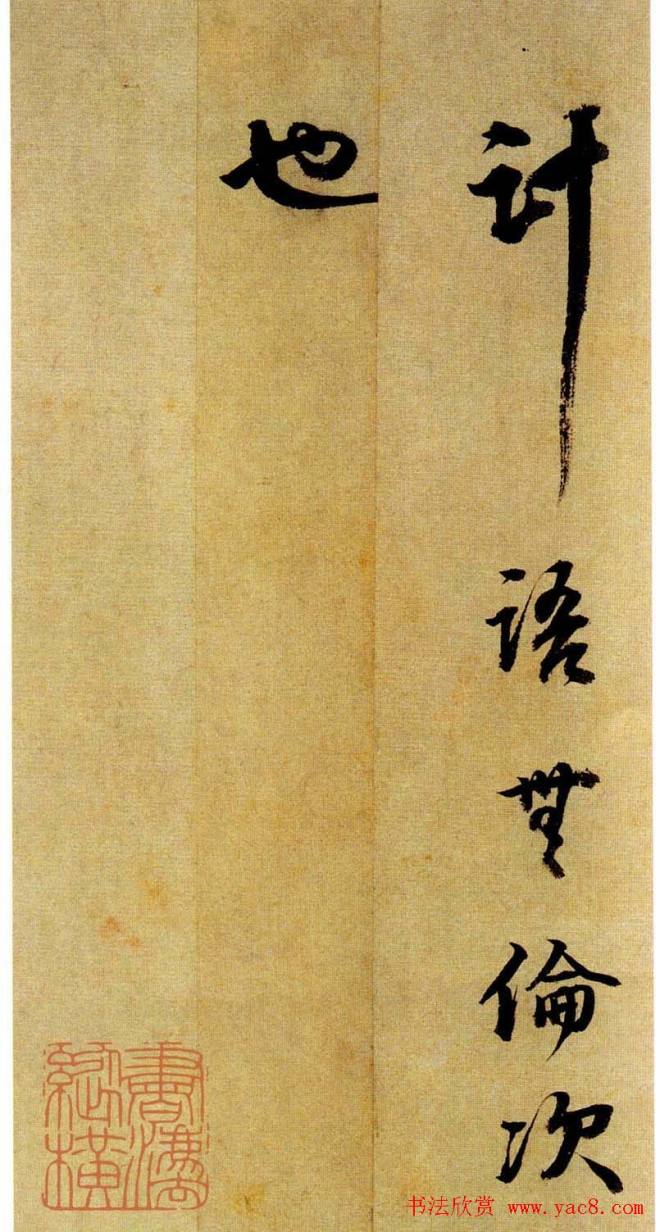 計語無倫次
也
书法欣赏 www.yac8.com